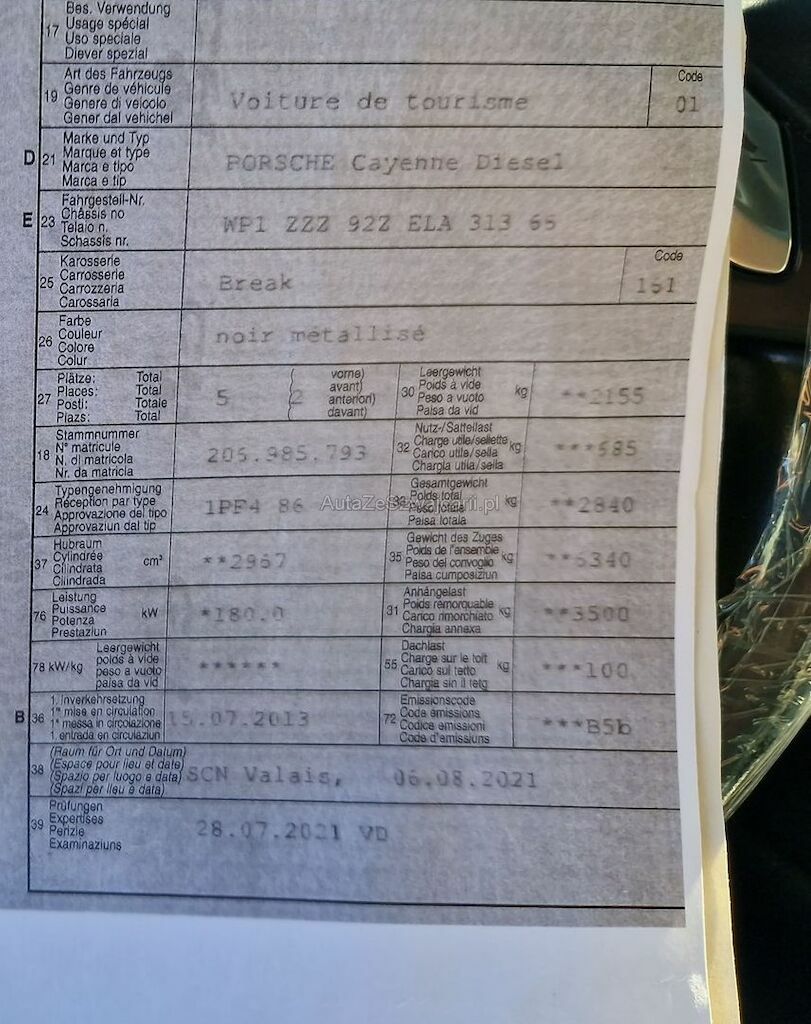 Bes. Verwendung
17 Usage spécial
Uso speciale
Diever spezial
Art des Fahrzeugs Code
19 Genre de véhicule Voiture de tourisme 01
Genere di veicolo
Gener dal vehichel
Marke und Typ
D 21 Marque et type PORSCHE Cayenne Diesel
Marca e tipo
Marca e tip
Fahrgestell-Nr.
E 23 Châssis no WP1 ZZZ 92Z ELA 313 65
Telaio n.
Schassis nr.
Karosserie Code
25 Carrosserie Break 151
Carrozzeria
Carossaria
Farbe
26 Couleur noir métallisé
Colore
Colur
Plätze: Total vorne) Leergewicht
27 Places: Total 5 ( 2 avant) 30 Poids à vide kg **2155
Posti: Totale anteriori) Peso a vuoto
Plazs: Total davant) Paisa da vid
Stammnummer Nutz-/Sattellast
18 N° matricule 205.985.793 32 Charge utile/sellette kg ***685
N. di matricola Carico utile/sella
Nr. da matricla Chargia utila/sella
Typengenehmigung Gesamtgewicht
24 Réception par type 1PF4 86 33 Poids total kg **2840
Approvazione del tipo Peso totale
Approvaziun dal tip Paisa totala
AutaZeSzwajcarii.pl
Hubraum Gewicht des Zuges
37 Cylindrée cm³ **2967 35 Poids de l'ensemble kg **6340
Cilindrata Peso del convoglio
Cilindrada Paisa cumposiziun
Leistung Anhängelast
76 Puissance kW *180.0 31 Poids remorquable kg **3500
Potenza Carico rimorchiato
Prestaziun Chargia annexa
Leergewicht Dachlast
78 kW/kg poids à vide ****** 55 Charge sur le toit kg ***100
peso a vuoto Carico sul tetto
paisa da vid Chargia sin il tetg
1. Inverkehrsetzung Emissionscode
B 36 1re mise en circulation 15.07.2013 72 Code émissions ***B5b
1a messa in circolazione Codice emissioni
1. entrada en circulaziun Code d'emissiuns
(Raum für Ort und Datum)
38 (Espace pour lieu et date) SCN Valais, 06.08.2021
(Spazio per luogo e data)
(Spazi per lieu e data)
Prüfungen
39 Expertises 28.07.2021 VD
Perizie
Examinaziuns